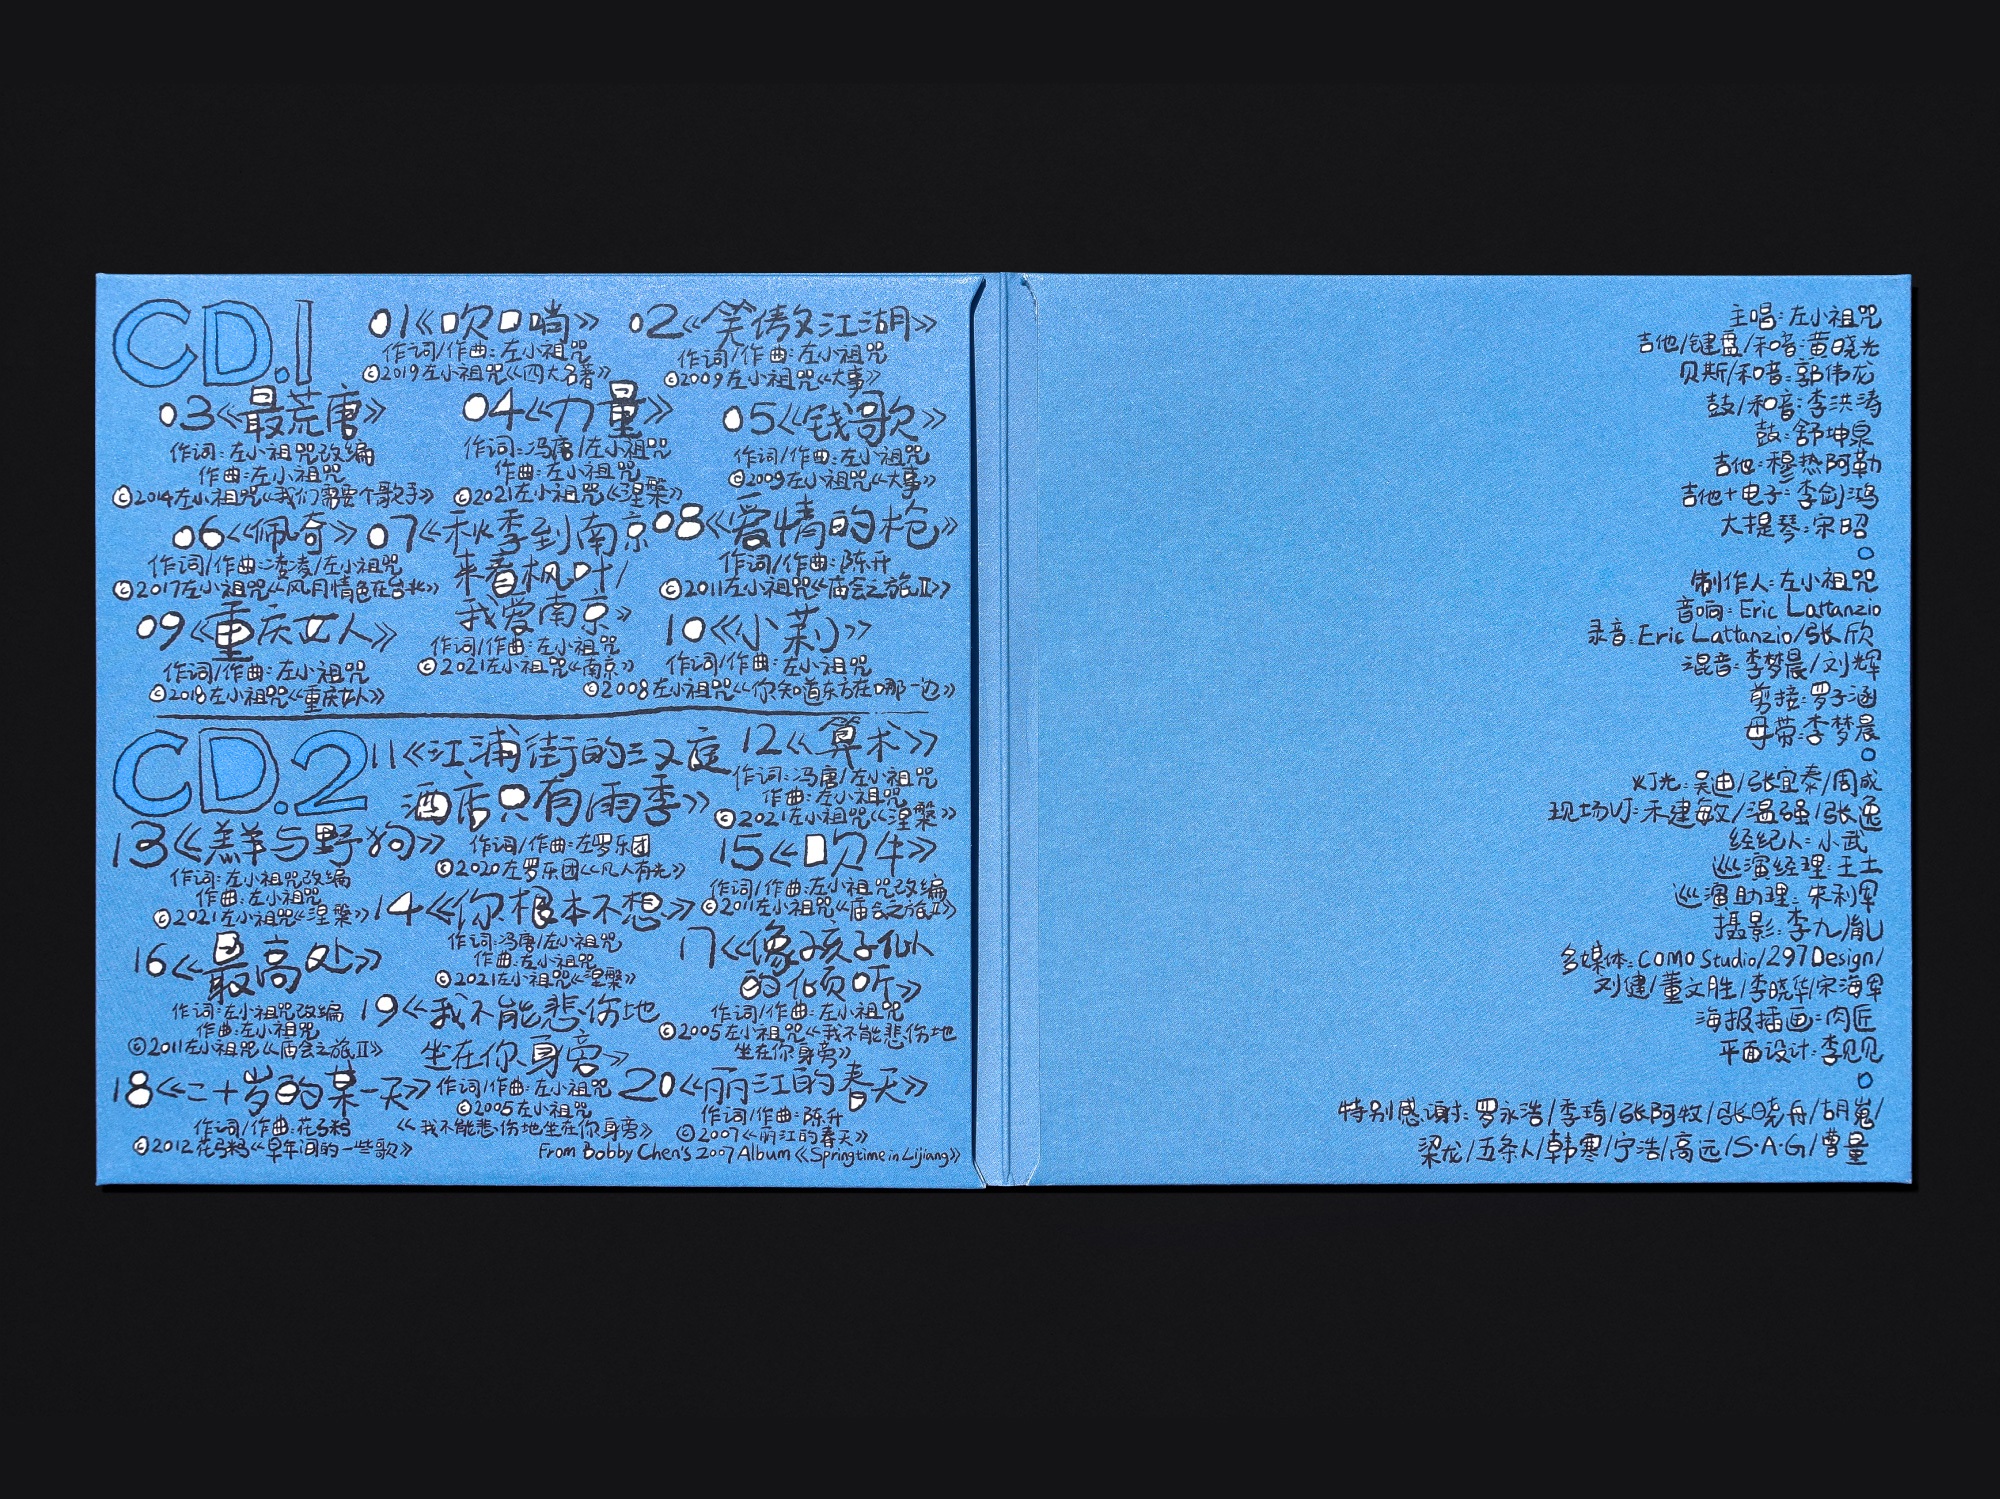 CD.1
01《吹口哨》
作词/作曲:左小祖咒
©2019左小祖咒《四大名著》
02《笑傲江湖》
作词/作曲:左小祖咒
©2009左小祖咒《大事》
03《最荒唐》
作词:左小祖咒改编
作曲:左小祖咒
©2014左小祖咒《我们需要个歌手》
04《力量》
作词:冯唐/左小祖咒
作曲:左小祖咒
©2021左小祖咒《涅槃》
05《钱歌》
作词/作曲:左小祖咒
©2009左小祖咒《大事》
06《佩奇》
作词/作曲:凄凄/左小祖咒
©2017左小祖咒《风月情色在台北》
07《秋季到南京
来看枫叶/
我爱南京》
作词/作曲:左小祖咒
©2021左小祖咒《南京》
08《爱情的枪》
作词/作曲:陈升
©2011左小祖咒《庙会之旅II》
09《重庆女人》
作词/作曲:左小祖咒
©2018左小祖咒《重庆女人》
10《小莉》
作词/作曲:左小祖咒
©2008左小祖咒《你知道东方在哪一边》
CD.2
11《江浦街的三叉庭
酒店只有雨季》
作词/作曲:左罗乐团
©2020左罗乐团《凡人有光》
12《算术》
作词:冯唐/左小祖咒
作曲:左小祖咒
©2021左小祖咒《涅槃》
13《羔羊与野狗》
作词:左小祖咒改编
作曲:左小祖咒
©2021左小祖咒《涅槃》
14《你根本不想》
作词:冯唐/左小祖咒
作曲:左小祖咒
©2021左小祖咒《涅槃》
15《吹牛》
作词/作曲:左小祖咒改编
©2011左小祖咒《庙会之旅II》
16《最高处》
作词:左小祖咒改编
作曲:左小祖咒
©2011左小祖咒《庙会之旅II》
17《像孩子似
的倾听》
作词/作曲:左小祖咒
©2005左小祖咒《我不能悲伤地
坐在你身旁》
18《二十岁的某一天》
作词/作曲:花与蚂
©2012花与蚂《早年间的一些歌》
19《我不能悲伤地
坐在你身旁》
作词/作曲:左小祖咒
©2005左小祖咒
《我不能悲伤地坐在你身旁》
20《丽江的春天》
作词/作曲:陈升
©2007《丽江的春天》
From Bobby Chen's 2007 Album《Springtime in Lijiang》
主唱:左小祖咒
吉他/键盘/和音:黄晓光
贝斯/和音:郭伟龙
鼓/和音:李洪涛
鼓:舒坤泉
吉他:穆热阿勒
吉他+电子:李剑鸿
大提琴:宋昭
制作人:左小祖咒
音响:Eric Lattanzio
录音:Eric Lattanzio/张欣
混音:李梦晨/刘辉
剪接:罗子涵
母带:李梦晨
灯光:吴迪/张宜泰/周成
现场VJ:禾建敏/温强/张逸
经纪人:小武
巡演经理:王土
巡演助理:朱利军
摄影:李九胤
多媒体:COMO Studio/297Design/
刘健/董文胜/李晓华/宋海军
海报插画:肉匠
平面设计:李见见
特别感谢:罗永浩/李琦/张阿牧/张晓舟/胡嵬/
梁龙/五条人/韩寒/宁浩/高远/S·A·G/曹量